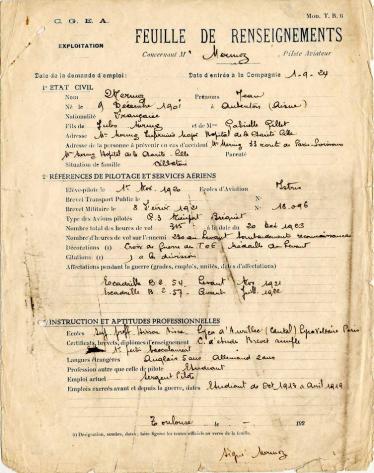 C. G. E. A.
Mod. T. R. 6
EXPLOITATION
FEUILLE DE RENSEIGNEMENTS
Concernant Mr Mermoz Pilote Aviateur
Date de la demande d'emploi: Date d'entrée à la Compagnie 1-9-24
1° ETAT CIVIL
Nom Mermoz Prénoms Jean
Né le 9 Décembre 1901 à Aubenton (Aisne)
Nationalité Française
Fils de Jules Mermoz et de Mme Gabrielle Gillet
Adresse Mme Mermoz Hôpital de la Charité Lille
Adresse de la personne à prévenir en cas d'accident Mme Mermoz 33 route de Paris
Mme Mermoz Hôpital de la Charité Lille Parenté
Situation de famille Célibataire
2° RÉFÉRENCES DE PILOTAGE ET SERVICES AÉRIENS
Elève-pilote le 1er Nov. 1920 Ecoles d'Aviation Istres
Brevet Transport Public le N°
Brevet Militaire le 2 Février 1921 N° 18.096
Type des Avions pilotés Breguet
Nombre total des heures de vol à la date du 20 1923
Nombre d'heures de vol sur l'ennemi Levant bombardement reconnaissances
Décorations Croix de Guerre des TOE Médaille du Levant
Citations à la division
Affectations pendant la guerre (grades, emplois, unités, dates d'affectations)
Escadrille B 54. Levant Nov. 1921
Escadrille B 57. Levant 1922
3° INSTRUCTION ET APTITUDES PROFESSIONNELLES
Ecoles Sup. prof. Lycée d'Aurillac (Cantal) Paris
Certificats, brevets, diplômes d'enseignement C. d'étude Brevet simple
1ère part. baccalauréat
Langues étrangères Anglais 5 ans Allemand 2 ans
Profession autre que celle de pilote Etudiant
Emploi actuel Sergent Pilote
Emplois exercés avant et depuis la guerre, dates Etudiant de Oct. 1913 à Avril 1919
Toulouse le 192
(1) Désignation, nombre, dates; faire figurer les textes officiels au verso de la feuille.
Signé Mermoz